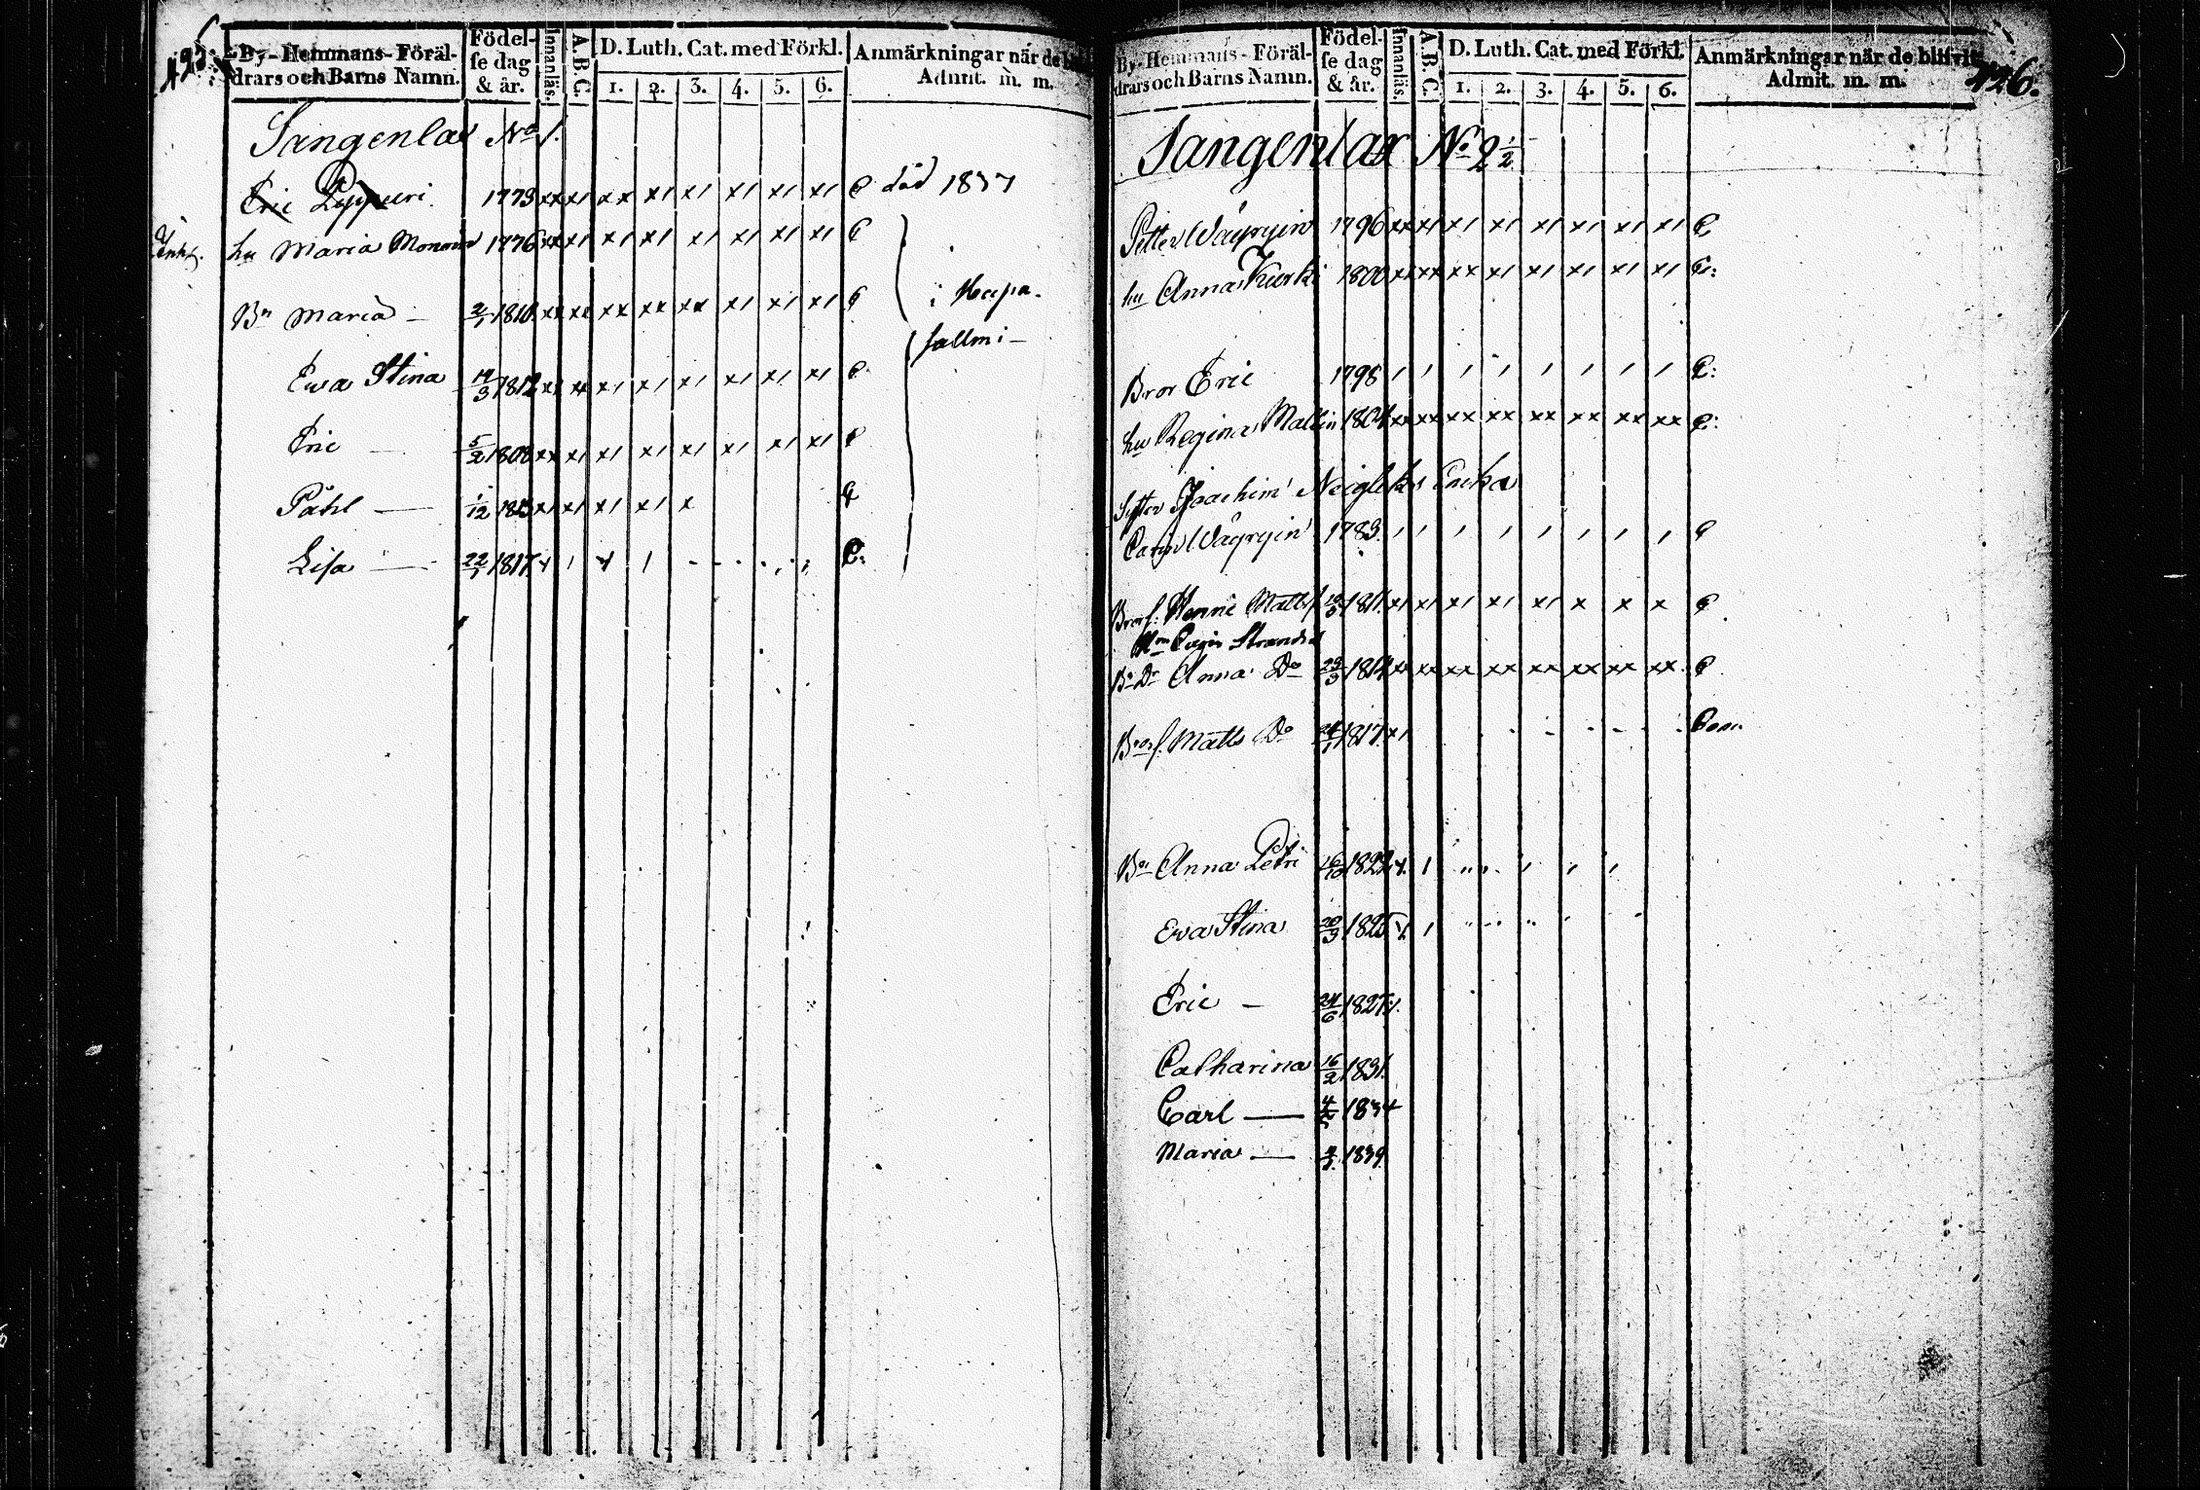 425.
By-Hemmans-Föräl-
drars och Barns Namn.
Födel-
se dag
& år.
Innanläs.
A.B.C.
D. Luth. Cat. med Förkl.
1. 2. 3. 4. 5. 6.
Anmärkningar när de
Admit. m. m.
Sangenlax No 1.
Eric Lippuri. 1773 xx x1 xx x1 x1 x1 x1 x1 C död 1837
Enk. hu Maria Mononen 1776 xx x1 x1 x1 x1 x1 x1 x1 C
i Haapa-
Bn Maria — 2/1 1810 xx xx xx xx xx x1 x1 x1 C
sallmi —
Ewa Stina 14/3 1812 x1 xx x1 x1 x1 x1 x1 x1 C
Eric — 5/2 1808 xx x1 x1 x1 x1 x1 x1 x1 C
Påhl — 1/12 x1 x1 x1 x1 x C
Lisa — 22/1 1817 C:
426.
By-Hemmans-Föräl-
drars och Barns Namn.
Födel-
se dag
& år.
Innanläs.
A.B.C.
D. Luth. Cat. med Förkl.
1. 2. 3. 4. 5. 6.
Anmärkningar när de blifvit
Admit. m. m.
Sangenlax No 2 1/2
Petter Wäyryin 1796 xx x1 x1 x1 x1 x1 x1 x1 C
hu Anna Kurki 1800 xx xx xx x1 x1 x1 x1 x1 C:
Bror Eric 1798 / / / / / / / / C:
hu Regina Mallin 1804 xx xx xx xx xx xx xx xx C:
Syster Joachim Neigliks Encka
Carin Wäyryin 1783 / / / / / / / / C
Brors. Henric Matts. 1811 x1 x1 x1 x1 x1 x x x C
Carin
Br Dr Anna Do 1814 xx xx xx xx xx xx xx xx C
Brors. Matts Do 1817 x1 Com.
Bn Anna Petri 16/10 1822
Ewa Stina 20/3 1825
Eric — 24/6 1827
Catharina 16/2 1831
Carl — 1834
Maria — 1839